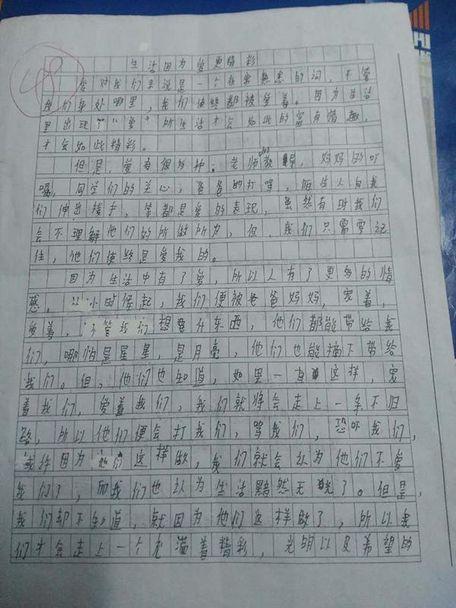 48
生活因为爱更精彩
爱对我们来说是一个在熟悉的词,不管
我们身处哪里,我们使终都被爱着。因为生活
里出现了“爱”所生活才会如此的富有情趣,
才会如此精彩。
但是,爱有很多种:老师的教,妈妈的叮
嘱,同学们的关心,爸爸的打骂,陌生人向我
们伸出援手,等都是爱的表现,虽然有时我们
会不理解他们的所做所为,但,我们只需要记
住,他们使终是爱我的。
因为生活中有了爱,所以人有了更多的情
感,从小时候起,我们便被爸爸妈妈,宠着,
爱着,不管我们想要什东西,他们都能带给我
们,哪怕是星星,是月亮,他们也能摘下带给
我们。但,他们也知道,如果一直这样,宠
着我们,爱着我们,我们就将会走上一条不归
路,所以他们便会打我们,骂我们,恐吓我们,
或许因为他们这样做,我们就会认为他们不爱
我们了,而我们也认为生活黯然无光了。但是,
我们却不知道,就因为他们这样做了,所以我
们才会走上一个充满着精彩,光明以及希望的